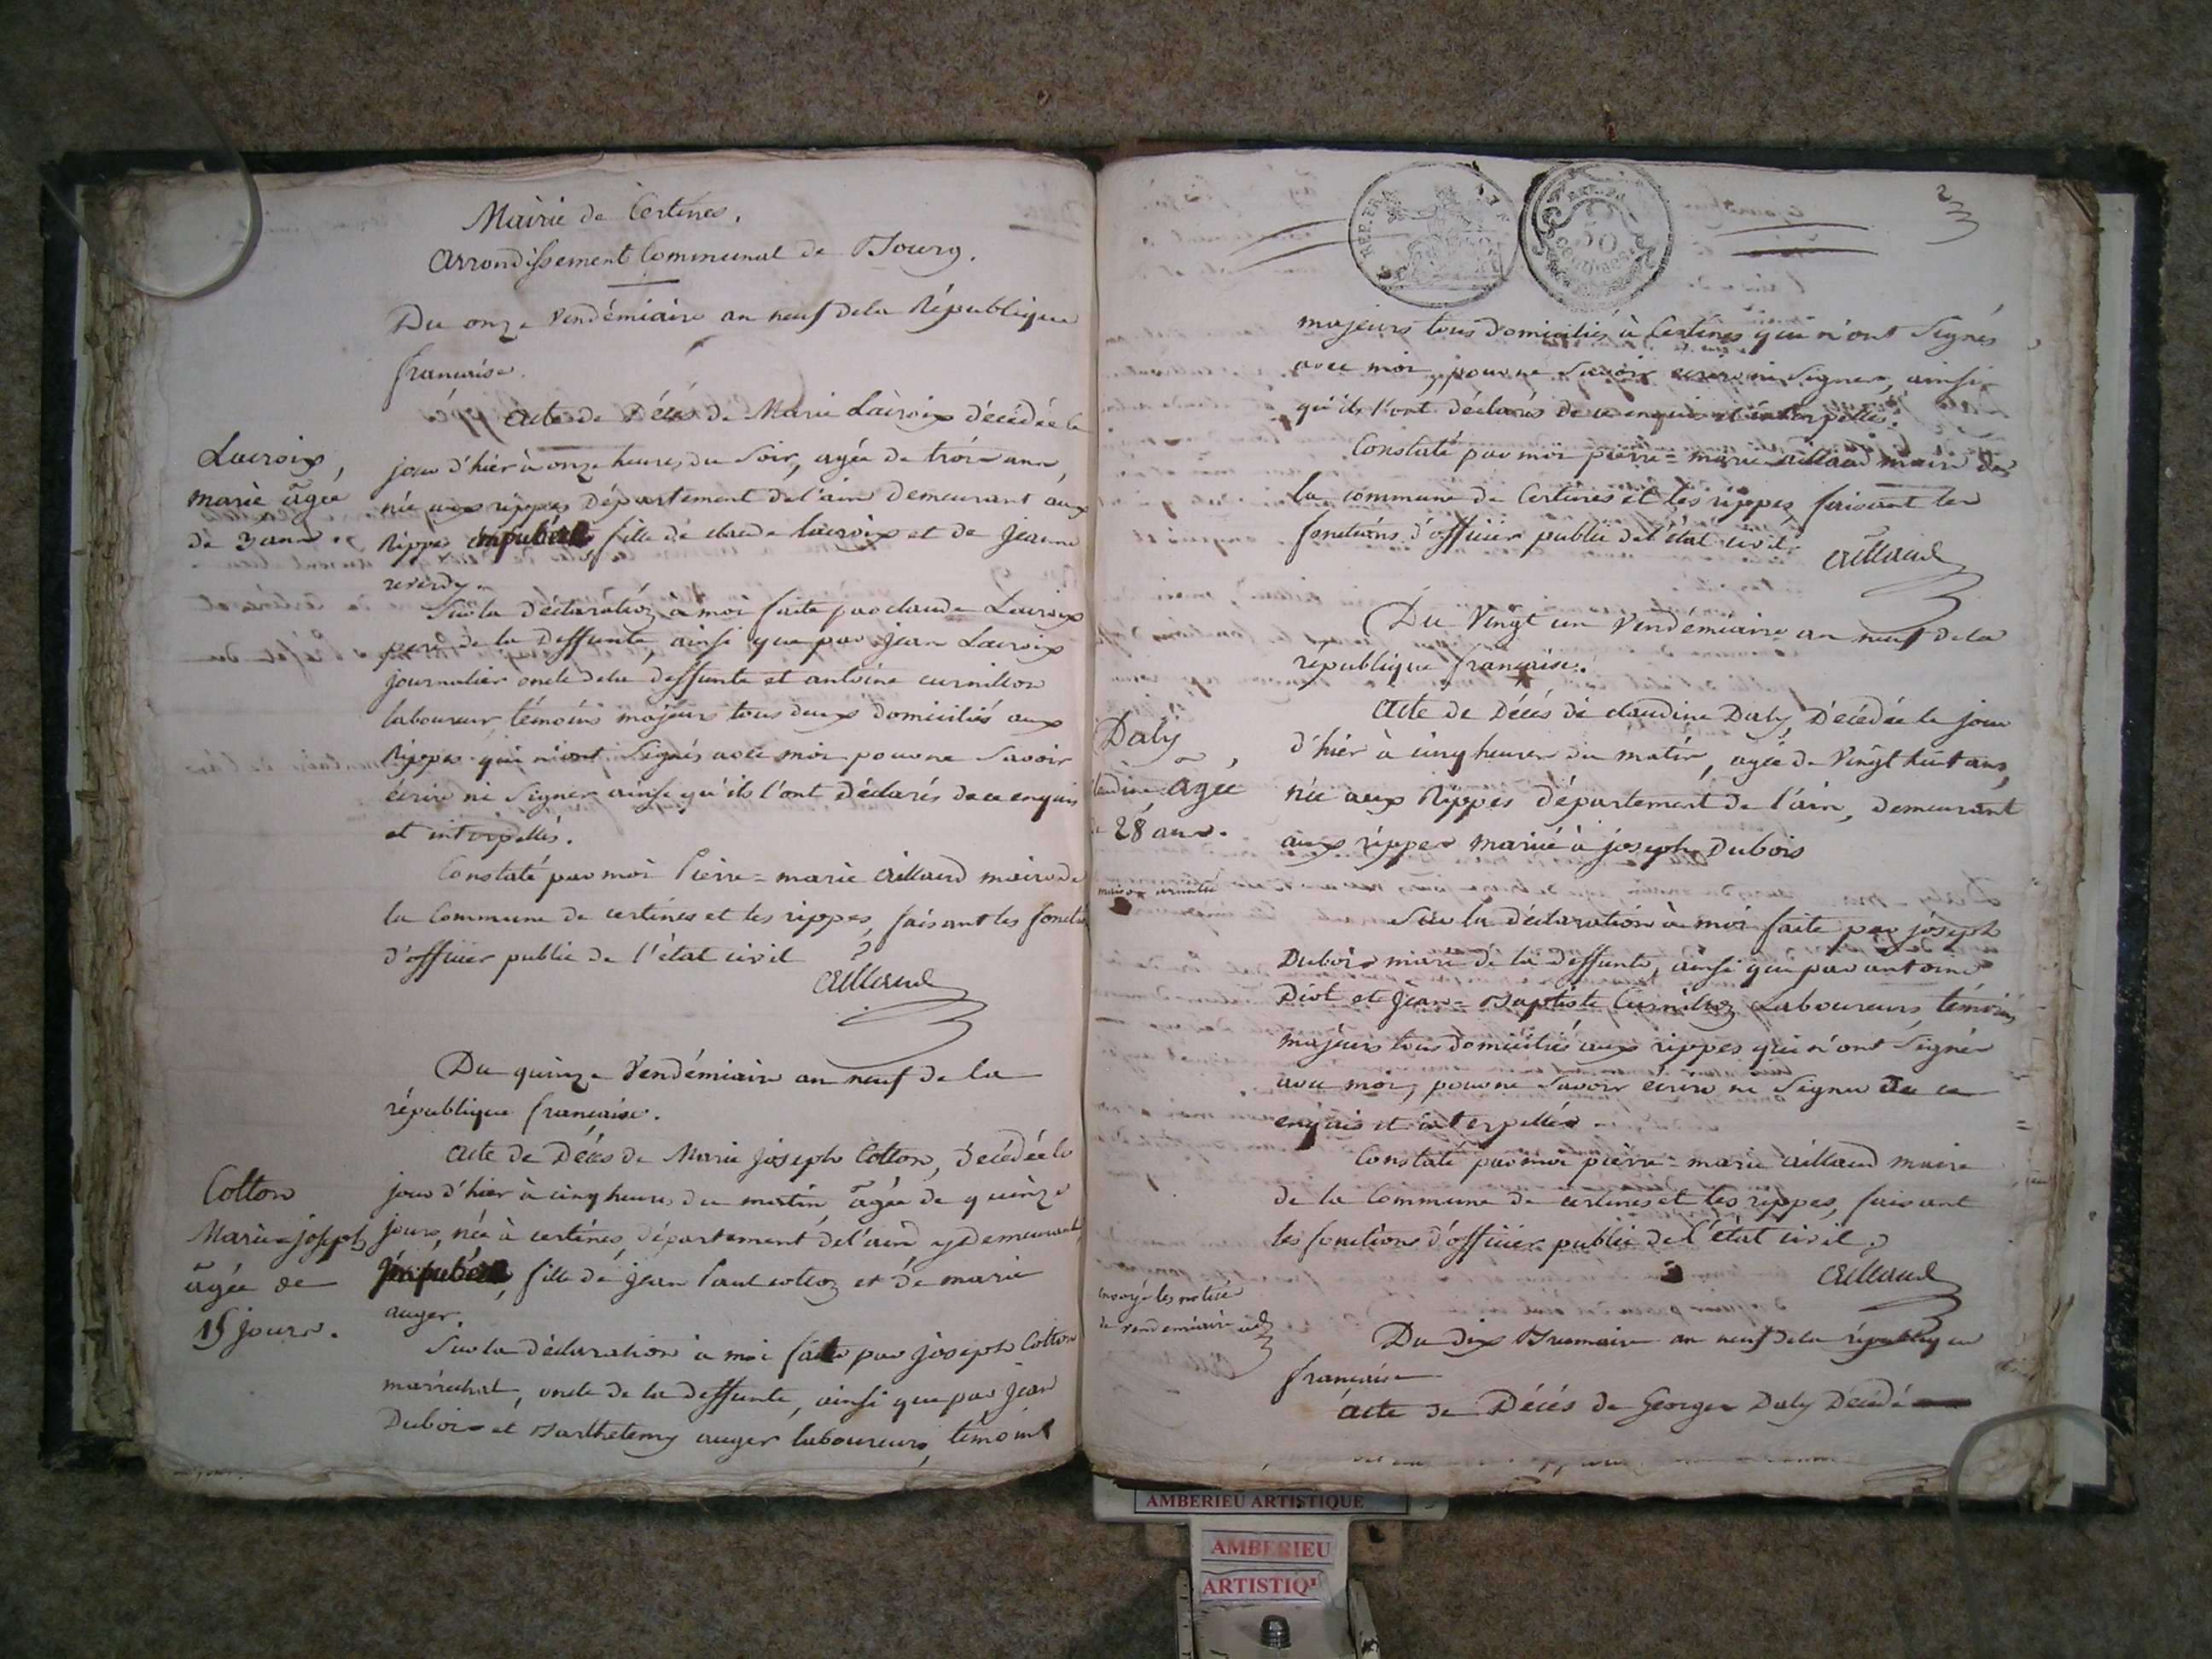 Mairie de Certines.
Arrondissement Communal de Bourg.
Du onze Vendémiaire an neuf de la République
française.
Acte de Décés de Marie Lacroix décédée le
Lacroix,
marie âgée
de 3 ans.
jour d'hier à onze heures du soir, agée de trois ans,
née aux rippes Département de l'ain demeurant aux
Rippes impubère fille de claude lacroix et de Jeanne
reverdy
Sur la déclaration à moi faite par claude Lacroix
pere de la deffunte, ainsi que par jean Lacroix
journalier oncle dela deffunte et antoine curnillon
laboureur témoins majeurs tous deux domiciliés aux
Rippes qui n'ont signés avec moi pour ne savoir
écrire ni signer ainsi qu'ils l'ont déclarés de ce enquis
et interpellés.
Constaté par moi Pierre=marie aillaud maire de
la Commune de certines et les rippes, faisant les fonctions
d'officier public de l'état civil
aillaud
Du quinze Vendémiaire an neuf de la
république française.
Acte de Décés de Marie Joseph Cotton, décédée le
Cotton
Marie=joseph
âgée de
15 jours.
jour d'hier à cinq heures du matin, âgée de quinze
jours, née à certines, département de l'ain y demeurant
impubère, fille de jean Paul cotton et de marie
auger.
Sur la déclaration à moi faite par joseph Cotton
maréchal, oncle de la deffunte, ainsi que par jean
Dubois et Barthelemy auger laboureurs, témoins
REP. FRA
50
centimes
2
majeurs tous domiciliés à Certines qui n'ont signés
avec moi, pour ne savoir écrire ni signer, ainsi
qu'ils l'ont déclarés de ce enquis et interpellés.
Constaté par moi pierre=marie aillaud maire de
la commune de Certines et les rippes faisant les
fonctions d'officier public de l'état civil.
aillaud
Du Vingt un Vendémiaire an neuf de la
république française.
Acte de Décés de claudine Daly, Décédée le jour
Daly,
laudine âgée
28 ans.
d'hier à cinq heures du matin, agée de Vingt huit ans,
née aux Rippes département de l'ain, demeurant
aux rippes mariée à joseph Dubois
Sur la déclaration à moi faite par joseph
Dubois mari de la deffunte, ainsi que par antoine
Diot et Jean=Baptiste Curnillon Laboureurs, témoins
majeurs tous domiciliés aux rippes qui n'ont signés
avec moi, pour ne savoir écrire ni signer de ce
enquis et interpellés.
Constaté par moi pierre=marie aillaud maire
de la Commune de certines et les rippes, faisant
les fonctions d'officier public de l'état civil.
aillaud
envoyé les notices
de vendemiaire
Du dix Brumaire an neuf de la république
française
Acte de Décés de George Daly Décédé
AMBERIEU ARTISTIQUE
AMBERIEU
ARTISTIQ